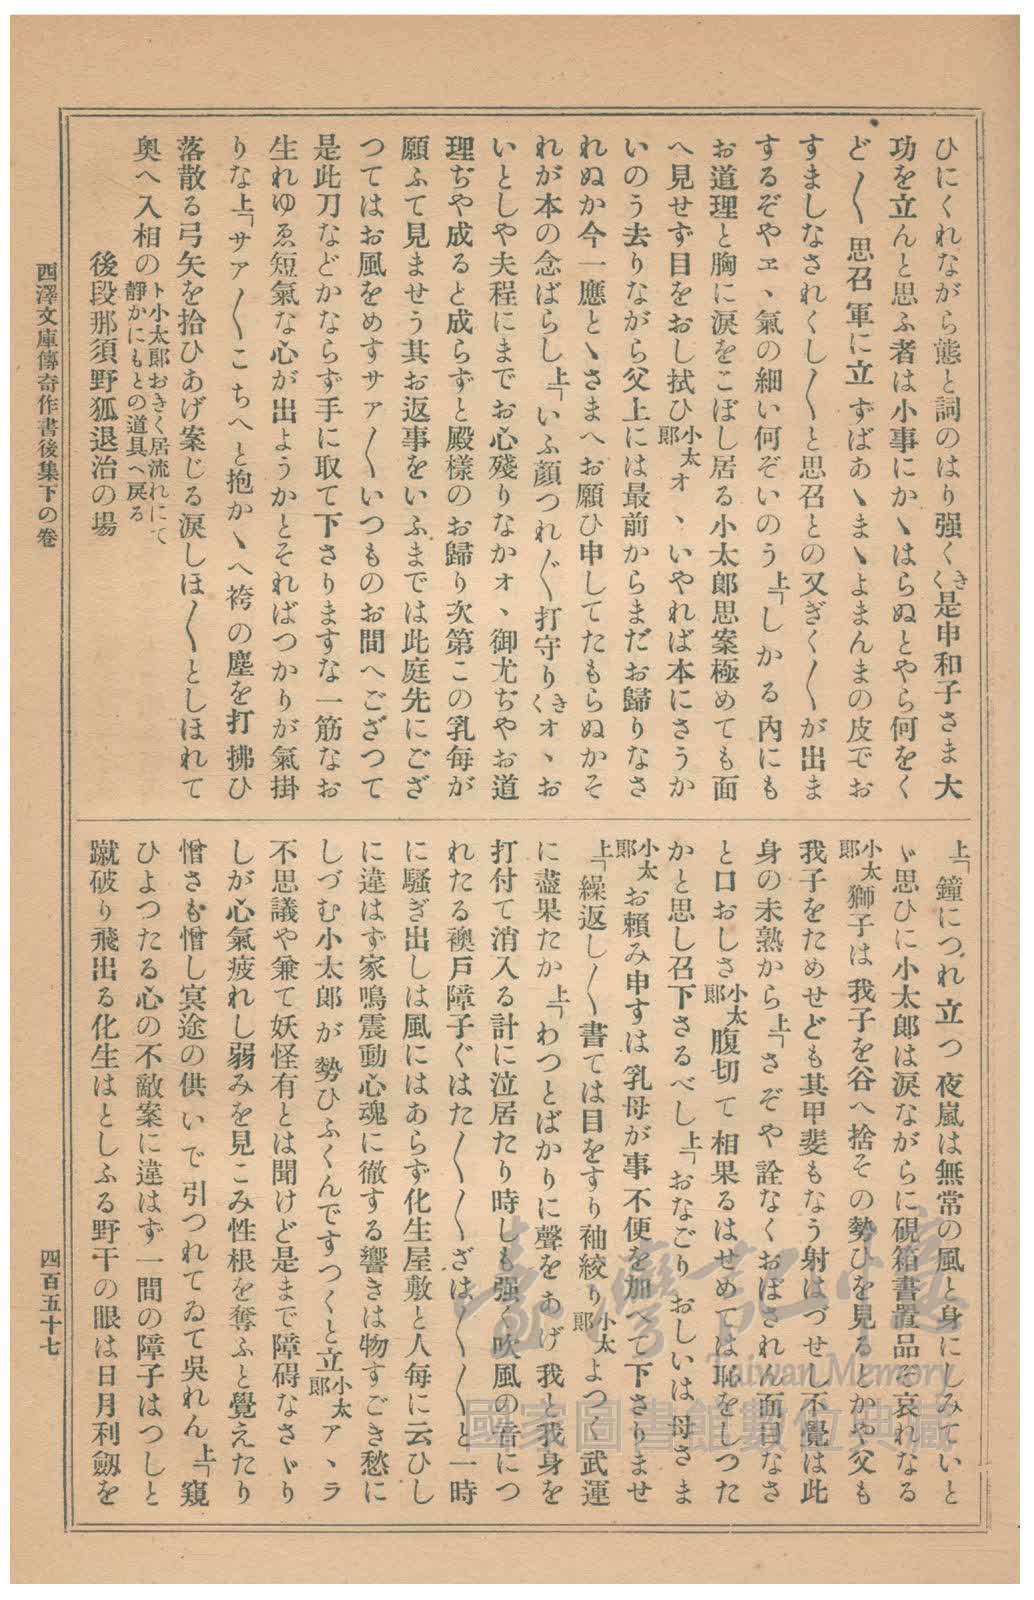 ひにくれながら態と詞のはり强くきく是申和子さま大
功を立んと思ふ者は小事にかゝはらぬとやら何をく
ど〱思召軍に立ずばあゝまゝよまんまの皮でお
すましなされくし〱と思召との又ぎく〱が出ま
するぞやヱヽ氣の細い何ぞいのう上「しかる內にも
お道理と胸に淚をこぼし居る小太郞思案極めても面
へ見せず目をおし拭ひ小太郞オヽいやれば本にさうか
いのう去りながら父上には最前からまだお歸りなさ
れぬか今一應とゝさまへお願ひ申してたもらぬかそ
れが本の念ばらし上「いふ顏つれ〲打守りきくオヽお
いとしや夫程にまでお心殘りなかオヽ御尤ぢやお道
理ぢや成ると成らずと殿樣のお歸り次第この乳每が
願ふて見ませう其お返事をいふまでは此庭先にござ
つてはお風をめすサァ〱いつものお間へござつて
是此刀などかならず手に取て下さりますな一筋なお
生れゆゑ短氣な心が出ようかとそればつかりが氣掛
りな上「サァ〱こちへと抱かゝへ袴の塵を打拂ひ
落散る弓矢を拾ひあげ案じる淚しほ〱としほれて
奧へ入相のト小太郞おきく居流れにて靜かにもとの道具へ戾る
後段那須野狐退治の場
上「鐘につれ立つ夜嵐は無常の風と身にしみていと
ゞ思ひに小太郞は淚ながらに硯箱書置品ぞ哀れなる
小太郞獅子は我子を谷へ捨その勢ひを見るとかや父も
我子をためせども其甲斐もなう射はづせし不覺は此
身の未熟から上「さぞや詮なくおぼされん面目なさ
と口おしさ小太郞腹切て相果るはせめては恥をしつた
かと思し召下さるべし上「おなごりおしいは母さま
小太郞お賴み申すは乳母が事不便を加へて下さりませ
上「繰返し〱書ては目をすり袖絞り小太郞よつく武運
に盡果たか上「わつとばかりに聲をあげ我と我身を
打付て消入る計に泣居たり時しも强く吹風の音につ
れたる襖戶障子ぐはた〱〱ざは〱〱と一時
に騷ぎ出しは風にはあらず化生屋敷と人每に云ひし
に違はず家鳴震動心魂に徹する響きは物すごき愁に
しづむ小太郞が勢ひふくんですつくと立小太郞アヽラ
不思議や兼て妖怪有とは聞けど是まで障碍なさゞり
しが心氣疲れし弱みを見こみ性根を奪ふと覺えたり
憎さも憎し冥途の供いで引つれてゐて吳れん上「窺
ひよつたる心の不敵案に違はず一間の障子はつしと
蹴破り飛出る化生はとしふる野干の眼は日月利劔を
西澤文庫傳奇作書後集下の卷
四百五十七
臺灣記憶
Taiwan Memory
國家圖書館數位典藏